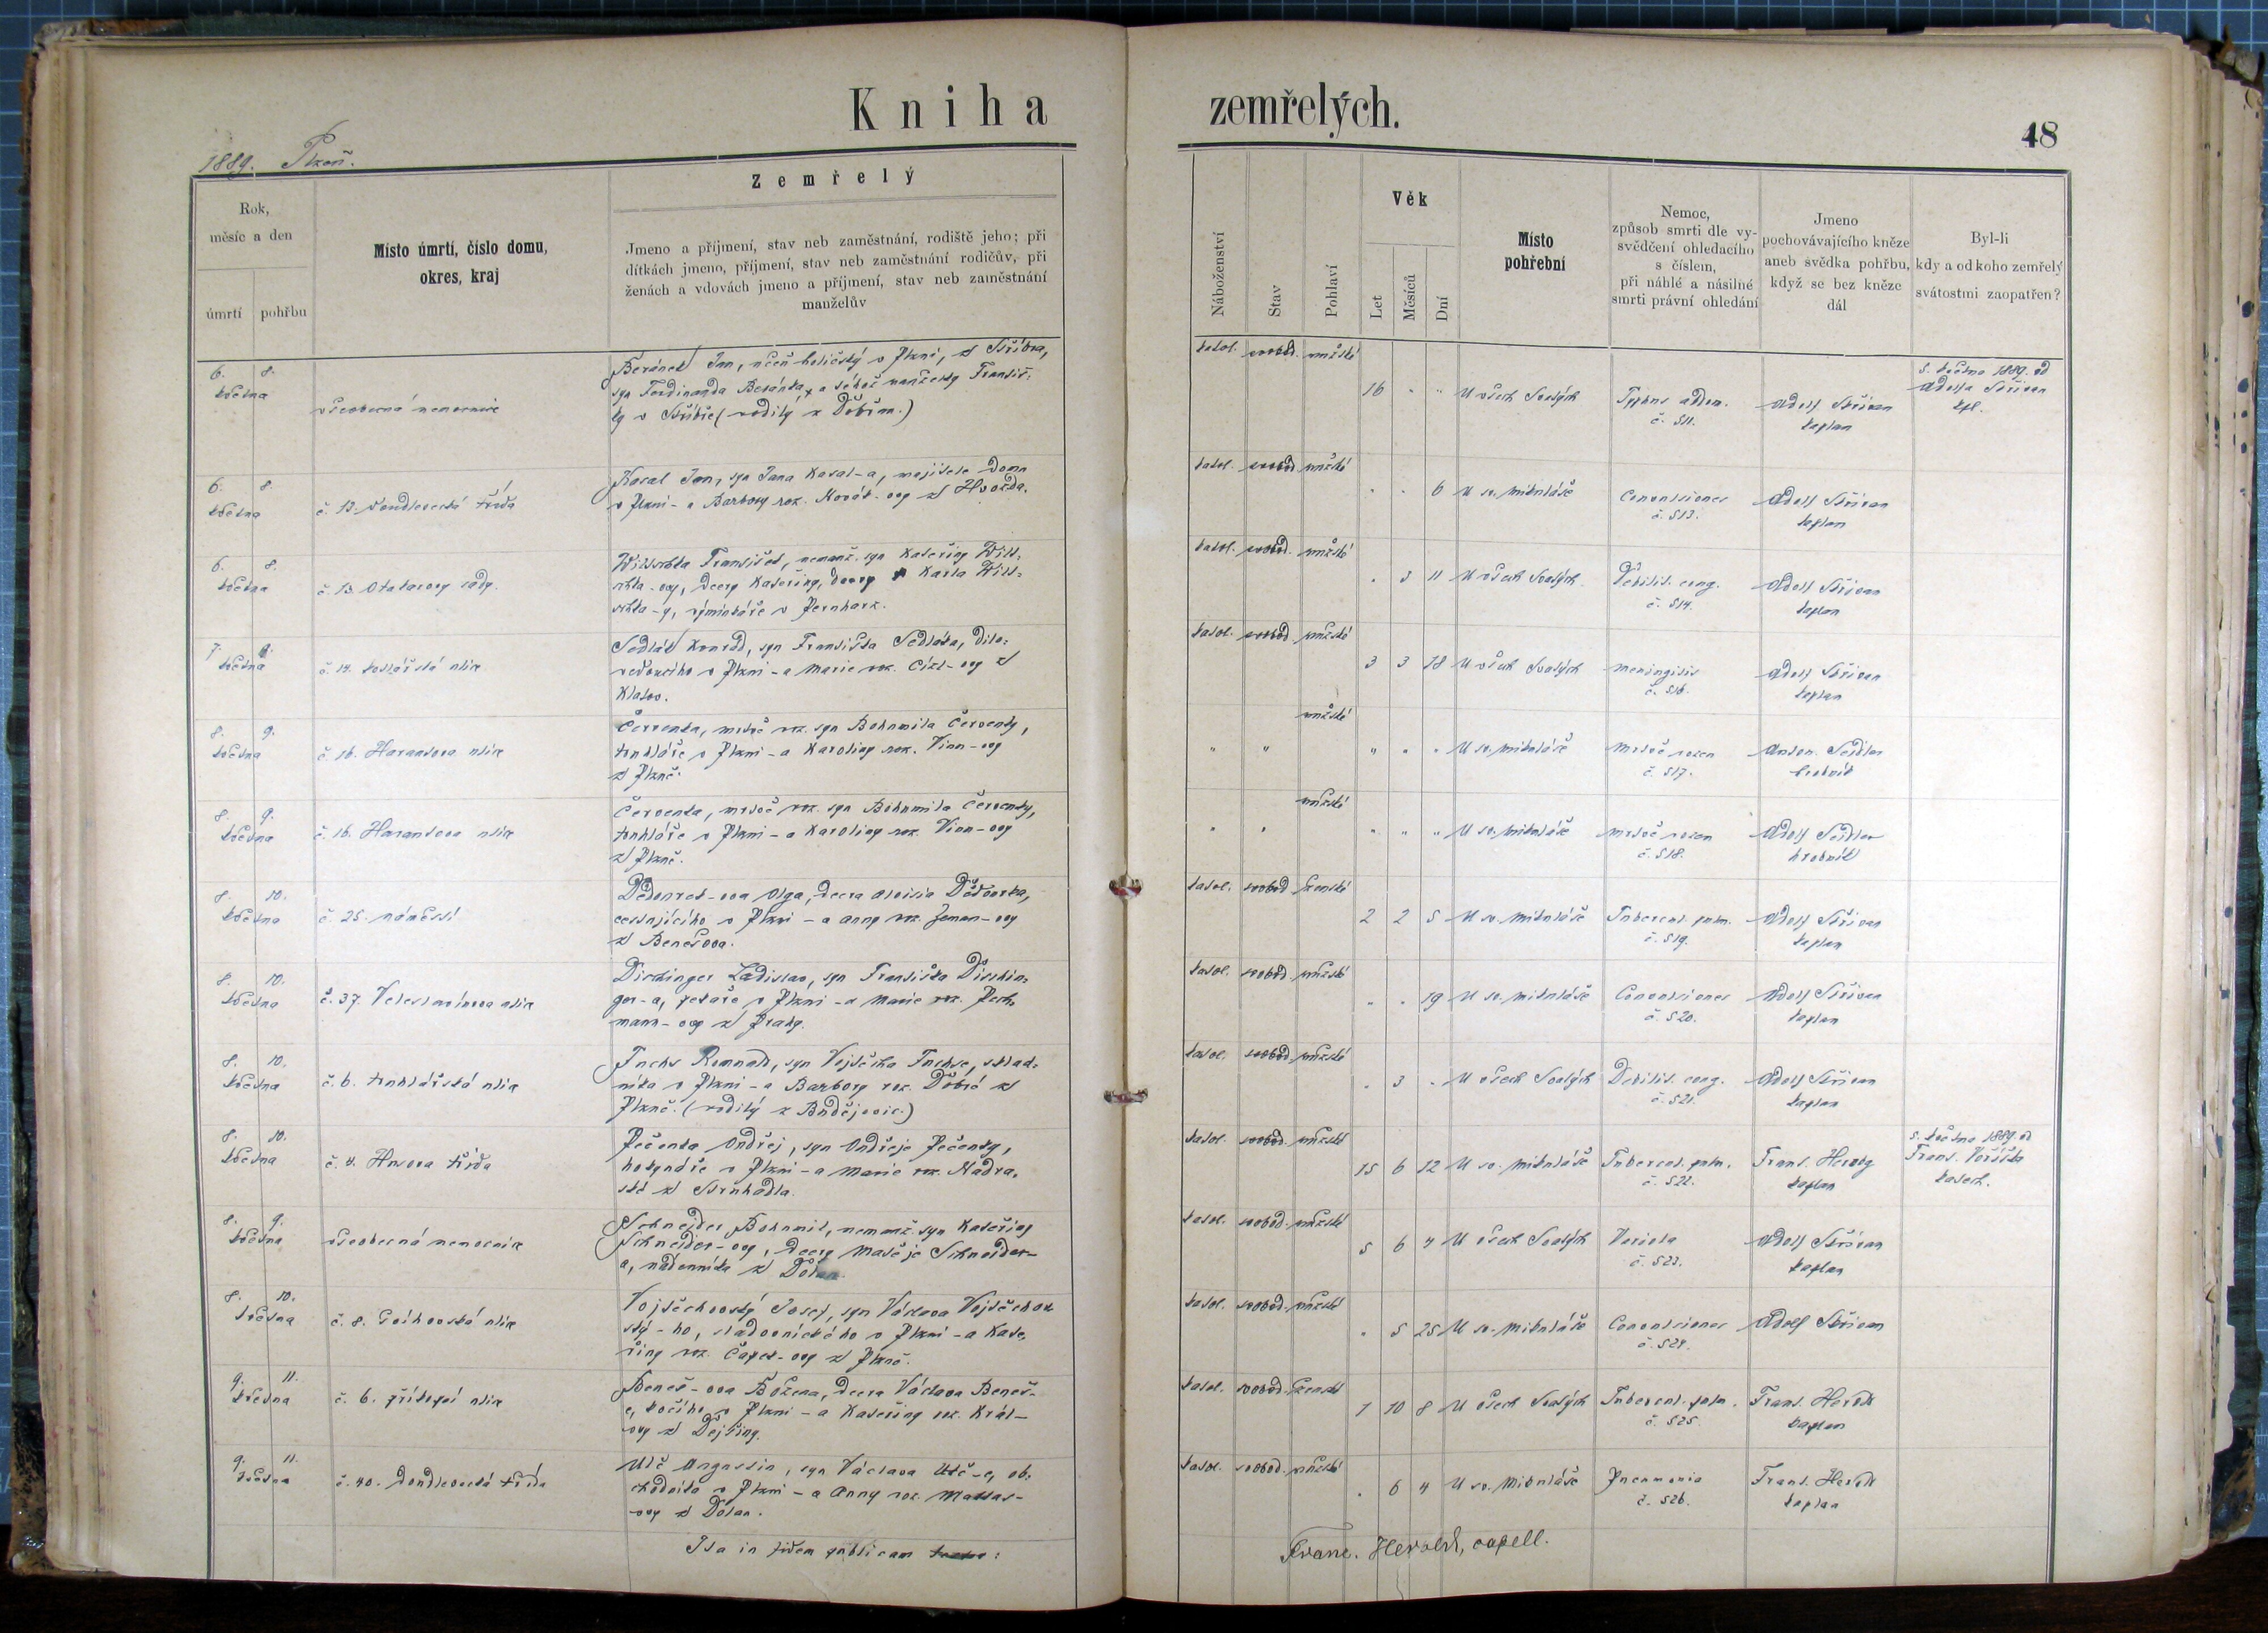 Kniha zemřelých.
48
1889. Plzeň.
Rok, měsíc a den
úmrtí
pohřbu
Místo úmrtí, číslo domu,
okres, kraj
Zemřelý
Jmeno a příjmení, stav neb zaměstnání, rodiště jeho; při
dítkách jmeno, příjmení, stav neb zaměstnání rodičův, při
ženách a vdovách jmeno a příjmení, stav neb zaměstnání
manželův
Náboženství
Stav
Pohlaví
Věk
Let
Měsíců
Dní
Místo
pohřební
Nemoc,
způsob smrti dle vy-
svědčení ohledacího
s číslem,
při náhlé a násilné
smrti právní ohledání
Jmeno
pochovávajícího kněze
aneb svědka pohřbu,
když se bez kněze
dál
Byl-li
kdy a od koho zemřelý
svátostmi zaopatřen?
6. 8.
května
všeobecná nemocnice
Beránek Jan, učeň holičský v Plzni, z Stříbra,
syn Ferdinanda Beránka, a téhož manželky Františ-
ky v Stříbře (rodilý z Dobřan.)
katol. svobod. mužské
16 " " U všech Svatých
Typhus abdom.
č. 511.
Adolf Skřivan
kaplan
5. května 1889. od
Adolfa Skřivan
kpl.
6. 8.
května
č. 13. Doudlevecká třída
Kasal Jan, syn Jana Kasal-a, majitele domu
v Plzni - a Barbory roz. Novák-ovy z Hvozda.
katol. svobod. mužské
" " 6 U sv. Mikuláše
Convulsiones
č. 513.
Adolf Skřivan
kaplan
6. 8.
května
č. 13. Otakarovy sady.
František, nemanž. syn Kateřiny
-ovy, dcery Kateřiny, Karla
-y, výminkáře v Pernharz.
katol. svobod. mužské
" 3 11 U všech Svatých
Debilit. cong.
č. 514.
Adolf Skřivan
kaplan
7.
května
č. 14. kollářská ulice
Sedlák Konrád, syn Františka Sedláka, dílo-
vedoucího v Plzni - a Marie roz. Cízl-ovy z
Klatov.
katol. svobod. mužské
3 3 18 U všech Svatých
Meningitis
č. 516.
Adolf Skřivan
kaplan
8. 9.
května
č. 16. Harantova ulice
Červenka, mrtvě roz. syn Bohumila Červenky,
truhláře v Plzni - a Karoliny roz. Vinn-ovy
z Plzně.
mužské
" " " " " U sv. Mikuláše
Mrtvě rozen
č. 517.
Anton. Seidler
hrobník
8. 9.
května
č. 16. Harantova ulice
Červenka, mrtvě roz. syn Bohumila Červenky,
truhláře v Plzni - a Karoliny roz. Vinn-ovy
z Plzně.
mužské
" " " " " U sv. Mikuláše
Mrtvě rozen
č. 518.
Adolf Seidler
hrobník
8. 10.
května
č. 25. náměstí
Olga, dcera Aloisia
cestujícího v Plzni - a Anny roz. Zeman-ovy
z Benešova.
katol. svobod. ženské
2 2 5 U sv. Mikuláše
Tubercul. pulm.
č. 519.
Adolf Skřivan
kaplan
8. 10.
května
č. 37. Veleslavínova ulice
Dirzinger Ladislav, syn Františka
ger-a, pekaře v Plzni - a Marie roz. Pech-
mann-ovy z Prahy.
katol. svobod. mužské
" " 19 U sv. Mikuláše
Convulsiones
č. 520.
Adolf Skřivan
kaplan
8. 10.
května
č. 6. truhlářská ulice
Fuchs Romuald, syn Vojtěcha Fuchse, sklad-
níka v Plzni - a Barbory roz. z
Plzně. (rodilý z Budějovic.)
katol. svobod. mužské
" 3 " U všech Svatých
Debilit. cong.
č. 521.
Adolf Skřivan
kaplan
8. 10.
května
č. 4. Husova třída
Pečenka Ondřej, syn Ondřeje Pečenky,
hokynáře v Plzni - a Marie roz.
z
katol. svobod. mužské
15 6 12 U sv. Mikuláše
Tubercul. pulm.
č. 522.
Frant. Herold
kaplan
5. května 1889. od
Frant. Voříška
katech.
8. 9.
května
všeobecná nemocnice
Schneider Bohumil, nemanž. syn Kateřiny
Schneider-ovy, dcery Matěje Schneider-
a, nádenníka z
katol. svobod. mužské
5 6 4 U všech Svatých
Variola
č. 523.
Adolf Skřivan
kaplan
8. 10.
května
č. 8. ulice
Vojtěchovský Josef, syn Václava Vojtěchov
ský-ho, sladovnického v Plzni - a Kate-
řiny roz. Čapek-ovy z Plzně.
katol. svobod. mužské
" 5 25 U sv. Mikuláše
Convulsiones
č. 524.
Adolf Skřivan
9. 11.
května
č. 6. příkopní ulice
Beneš-ova Božena, dcera Václava Beneš-
e, kočího v Plzni - a Kateřiny roz. Král-
ovy z Dejšiny.
katol. svobod. ženské
1 10 8 U všech Svatých
Tubercul. pulm.
č. 525.
Frant. Herold
kaplan
9. 11.
května
č. 40. Doudlevecká třída
Ulč Augustin, syn Václava Ulč-e, ob-
chodníka v Plzni - a Anny roz.
-ovy z Dolan.
katol. svobod. mužské
" 6 4 U sv. Mikuláše
Pneumonia
č. 526.
Frant. Herold
kaplan
Ita in fidem publicam
Franc. Herold, capell.